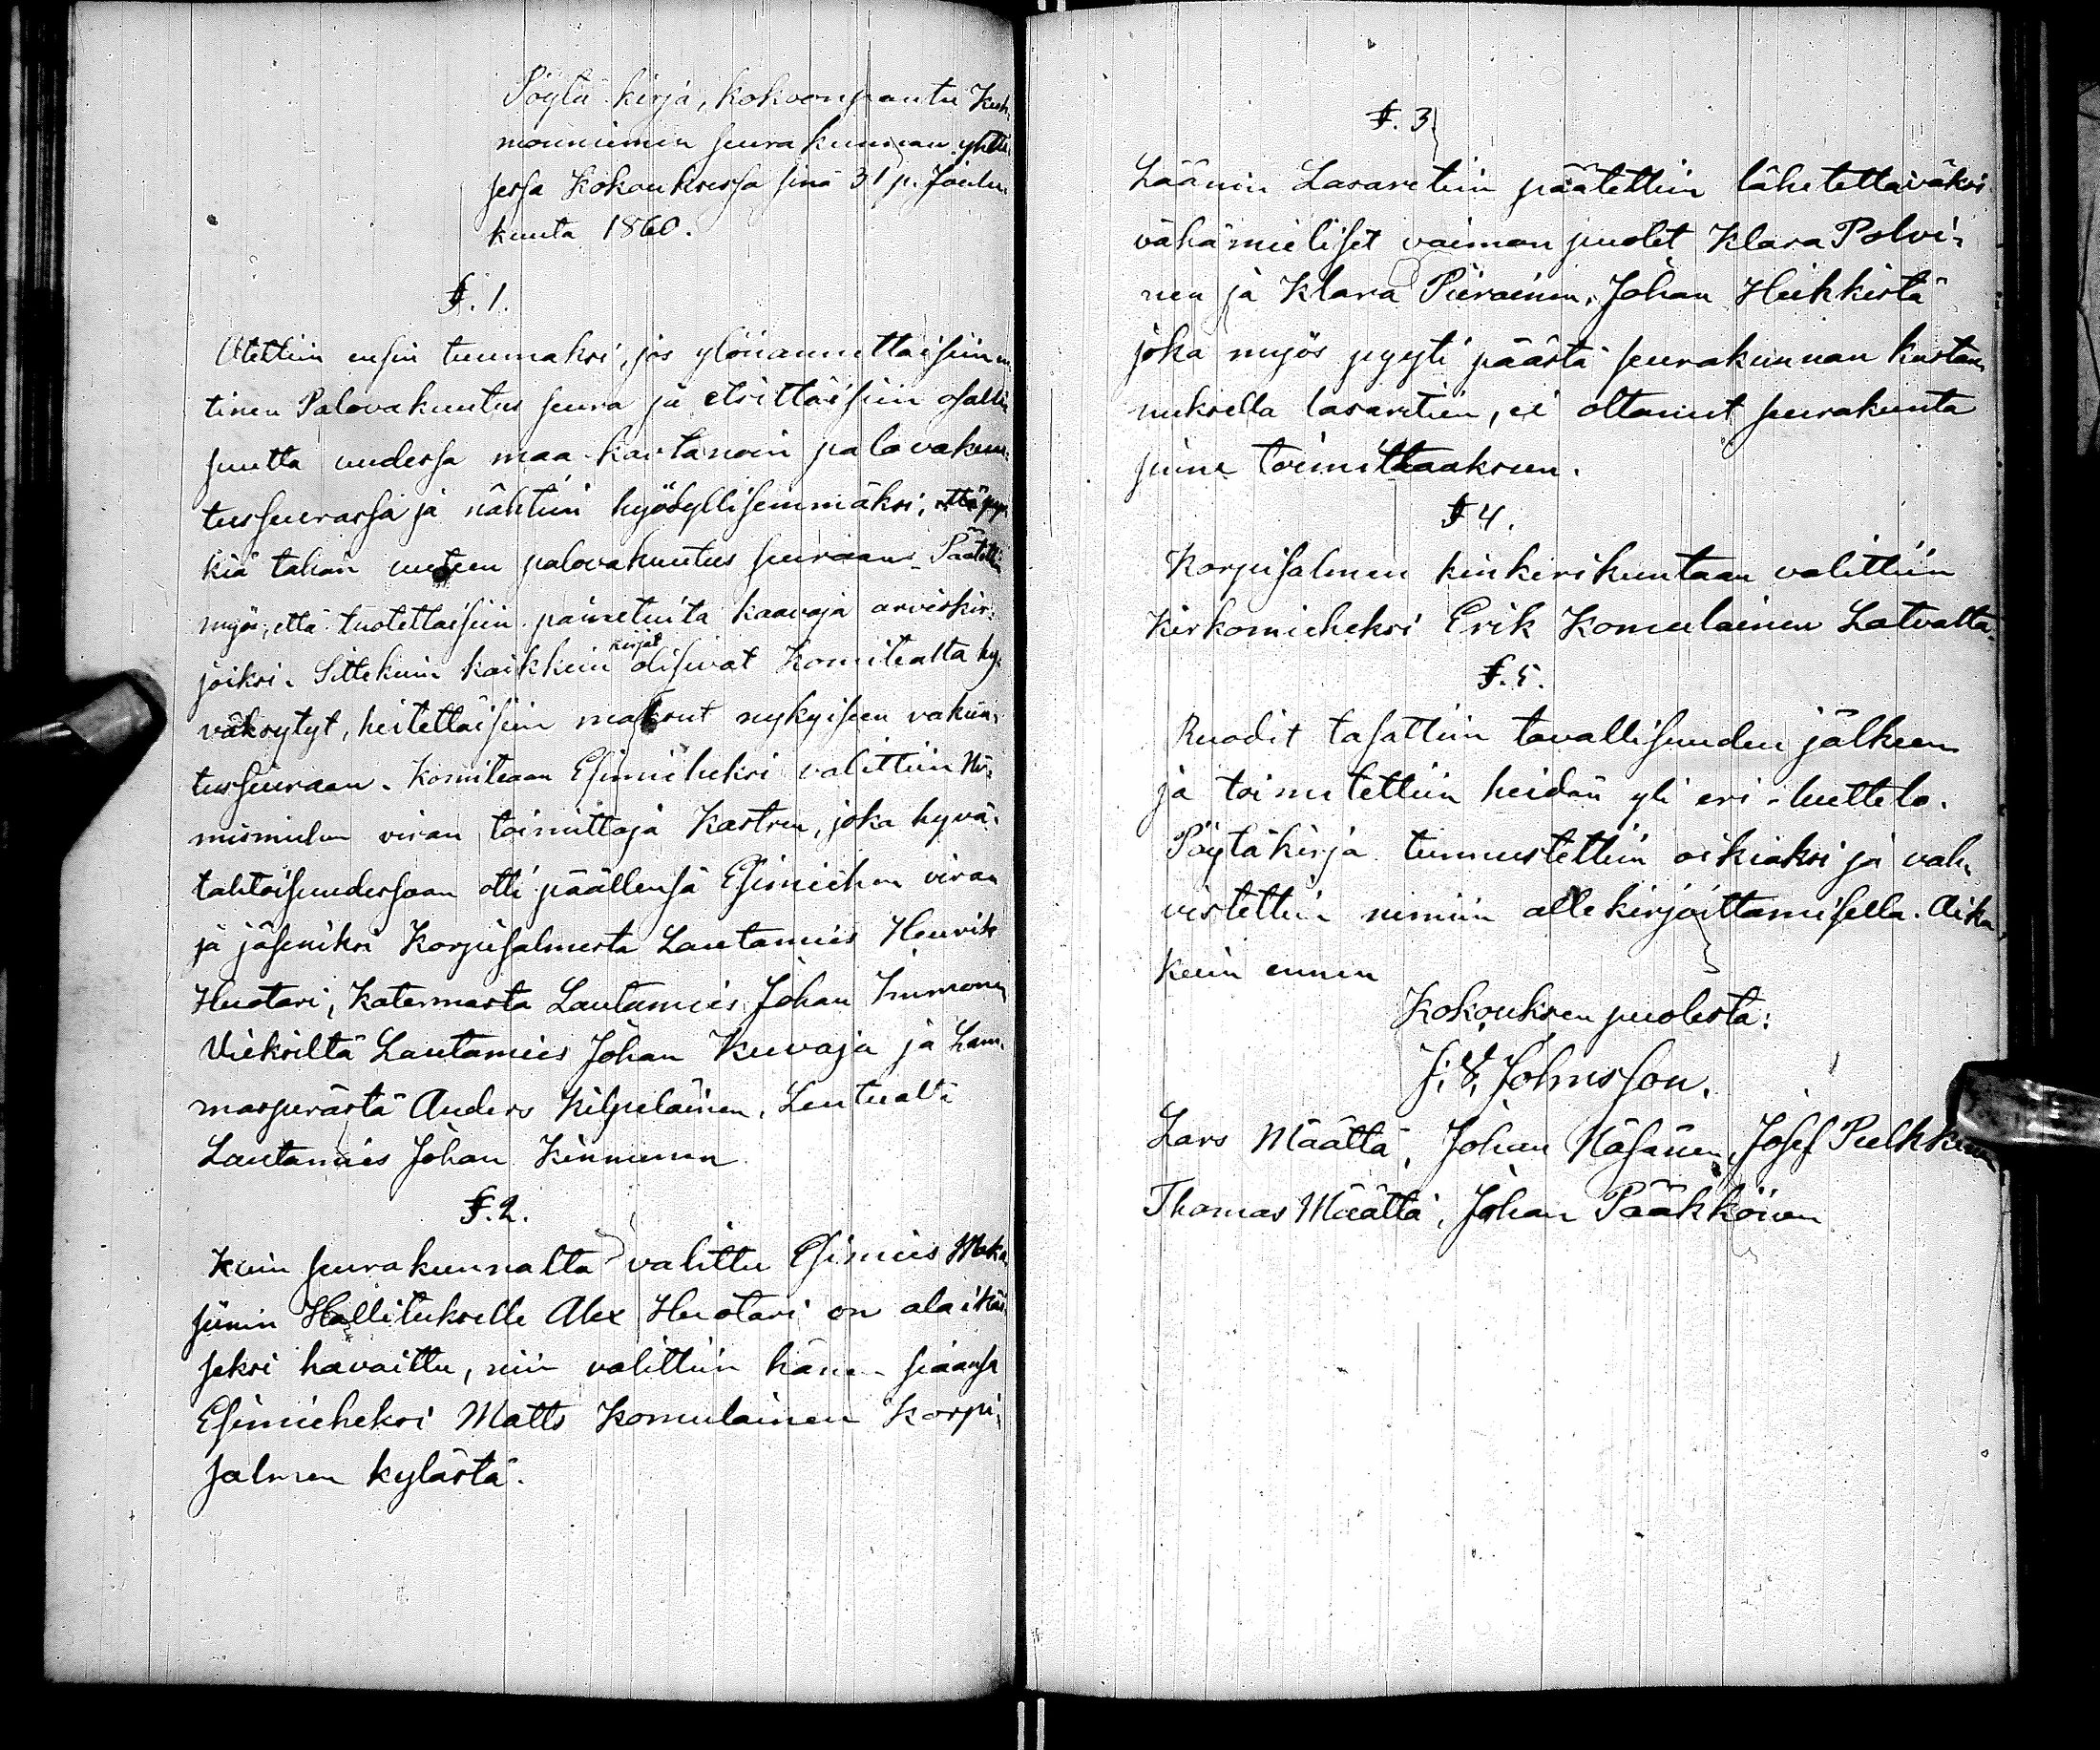 Pöytä kirja, kokoonpantu Kuh,
monniemen seurakunnan yhtei
sessa Kokouksessa sinä 31 p. Joulu,
kuuta 1860.
§. 1.
Otettiin ensin tuumaksi, jos ylönannettaisiin en
tinen Palovakuutus seura ja etsittäisiin osalli
suutta uudessa maa-kartanoin palovakuu,
tusseurassa ja nähtiin hyödyllisemmäksi, että pyr
kiä tähän uuteen palovakuutus seuraan. Päätetti
myös, että tuotettaisiin painetuita kaavoja arviokir,
joiksi. Sittekuin kaikkein kirjat olisivat Komitealta hy,
väksytyt, heitettäisiin maksut nykyiseen vakuu,
tusseuraan. Komiteaan Esimieheksi valittiin Ni,
mismiehen viran toimittaja Kastren, joka hyvä,
tahtoisuudessaan otti päällensä Esimiehen viran
ja jäseniksi Korpisalmesta Lautamies Henrik
Huotari, Katermasta Lautamies Johan Kinnonen
Vieksiltä Lautamies Johan Kuvaja ja Lam,
masperästä Anders Kilpeläinen, Lentualta
Lautamies Johan Kinnunen
§. 2.
Kuin seurakunnalta valittu Esimies Maka
siinin Hallitukselle Alex Huotari on alaikäi
seksi havaittu, niin valittiin hänen siaansa
Esimieheksi Matts Komulainen Korpi,
salmen kylästä.
§. 3.
Läänin Lasaretiin päätettiin lähetettäväksi
vähämieliset vaimon puolet Klara Polvi,
nen ja Klara Piirainen, Johan Heikkistä
joka myös pyyti päästä seurakunnan kustan,
nuksella lasaretiin, ei ottanut seurakunta
sinne toimittaaksen.
§ 4.
Korpisalmen kinkerikuntaan valittiin
Kirkomieheksi Erik Komulainen Latvalta.
§. 5.
Ruodit tasattiin tavallisuuden jälkeen
ja toimitettiin heidän yli eri-luettelo.
Pöytäkirja tunnustettiin oikiaksi ja vah,
vistettiin nimein allekirjoittamisella. Aika
kuin ennen
Kokouksen puolesta:
J. V. Johnsson.
Lars Määttä, Johan Näsänen, Josef Pulkkinen
Thomas Määttä, Johan Pääkkönen